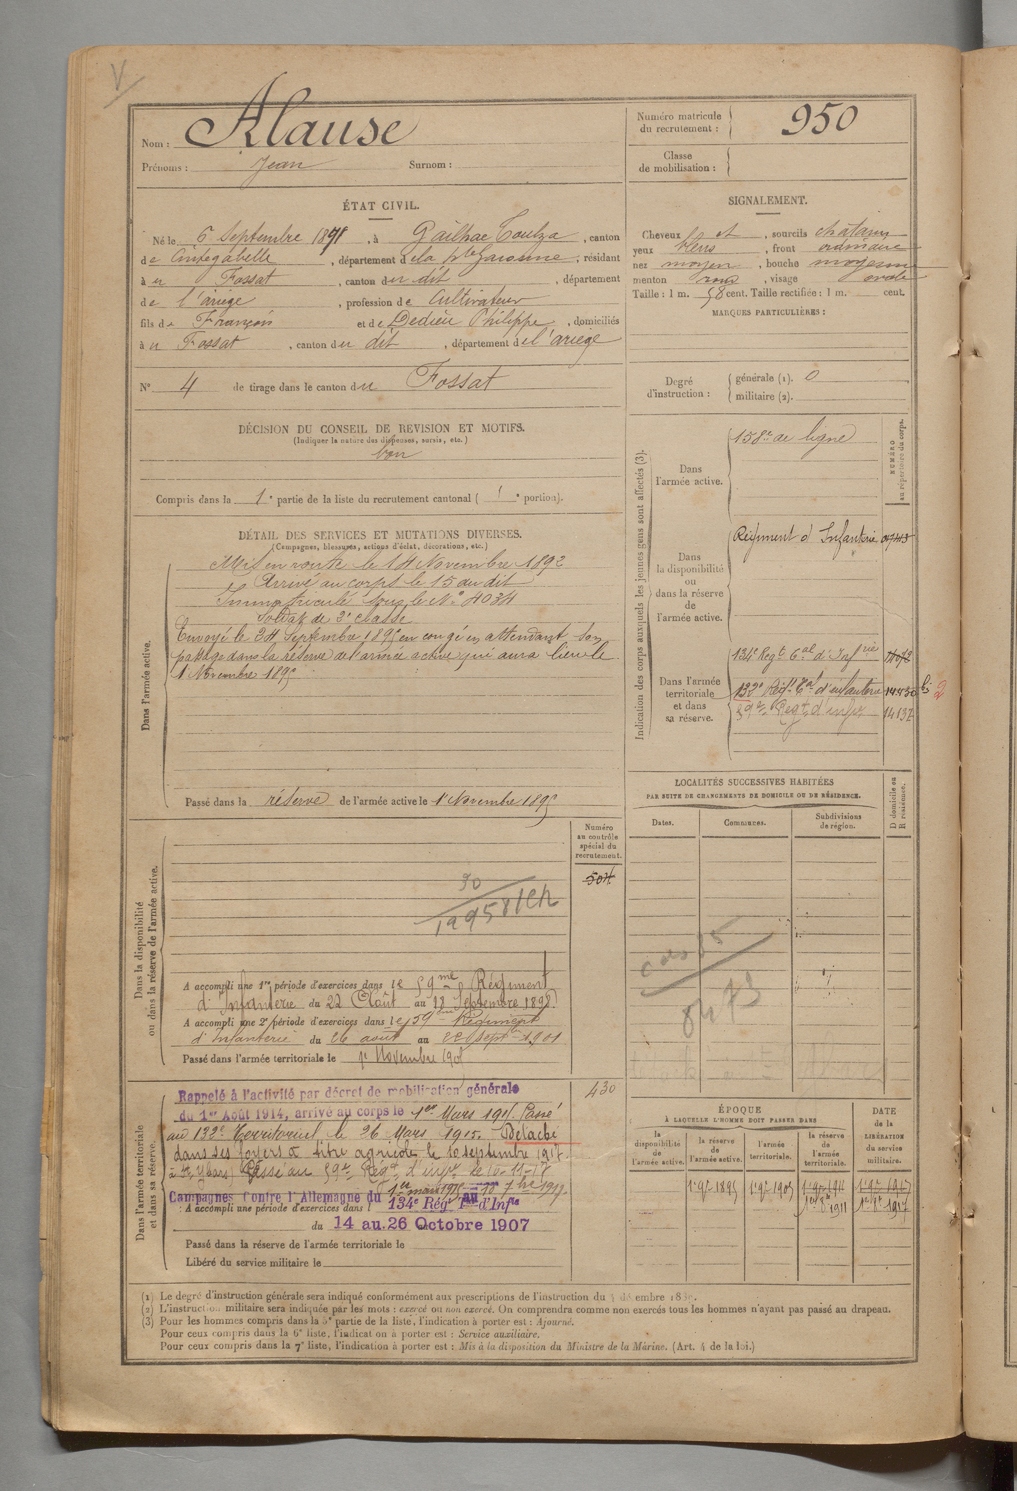 Nom : Alause
Prénoms : Jean Surnom :
Numéro matricule du recrutement : 950
Classe de mobilisation :
ÉTAT CIVIL.
Né le 6 Septembre 1871, à Gailhac Toulza, canton
de Cintegabelle, département de la Hte Garonne, résidant
à u Fossat, canton du dit, département
de l'ariège, profession de Cultivateur
fils de François et de Dedieu Philippe, domiciliés
à u Fossat, canton du dit, département de l'ariège
N° 4 de tirage dans le canton du Fossat
SIGNALEMENT.
Cheveux et, sourcils châtains
yeux bleus, front ordinaire
nez moyen, bouche moyenne
menton rond, visage ovale
Taille : 1 m. 58 cent. Taille rectifiée : 1 m. cent.
MARQUES PARTICULIÈRES :
Degré d'instruction : générale (1). 0
militaire (2).
DÉCISION DU CONSEIL DE REVISION ET MOTIFS.
(Indiquer la nature des dispenses, sursis, etc.)
bon
Compris dans la 1e partie de la liste du recrutement cantonal ( 1e portion).
DÉTAIL DES SERVICES ET MUTATIONS DIVERSES.
(Campagnes, blessures, actions d'éclat, décorations, etc.)
Dans l'armée active.
Mis en route le 14 Novembre 1892
Arrivé au corps le 15 du dit
Immatriculé sous le N° 4034
Soldat de 2e classe
Envoyé le 24 Septembre 1895 en congé en attendant son
passage dans la réserve de l'armée active qui aura lieu le
1 Novembre 1895
Passé dans la réserve de l'armée active le 1 Novembre 1895
Indication des corps auxquels les jeunes gens sont affectés (3).
NUMÉRO au répertoire du corps.
Dans l'armée active.
158e de ligne
Dans la disponibilité ou dans la réserve de l'armée active.
Régiment d'Infanterie
Dans l'armée territoriale et dans sa réserve.
134e Régt Cal d'Infrie
132e Régt Cal d'infanterie 14430 bis 2
59e Regt d'infie 14132
LOCALITÉS SUCCESSIVES HABITÉES
PAR SUITE DE CHANGEMENTS DE DOMICILE OU DE RÉSIDENCE.
Dates. Communes. Subdivisions de région. D domicile ou R résidence.
Dans la disponibilité ou dans la réserve de l'armée active.
Numéro au contrôle spécial du recrutement.
504
A accompli une 1re période d'exercices dans le 59me Régiment
d'Infanterie du 22 Août au 18 Septembre 1898
A accompli une 2e période d'exercices dans le 59me Régiment
d'Infanterie du 26 août au 22 Sept 1901
Passé dans l'armée territoriale le 1er Novembre 1905
Dans l'armée territoriale et dans sa réserve.
430
Rappelé à l'activité par décret de mobilisation générale
du 1er Août 1914, arrivé au corps le 1er Mars 1915. Passé
au 132e Territorial le 26 Mars 1915. Détaché
dans ses foyers à titre agricole le 10 septembre 1917
Passé au 59e Régt d'infie le
1er mars 1915 10 7bre 1917.
Campagnes Contre l'Allemagne du au
A accompli une période d'exercices dans l 134e Régt Tal d'Infie
du 14 au 26 Octobre 1907
Passé dans la réserve de l'armée territoriale le
Libéré du service militaire le
ÉPOQUE
À LAQUELLE L'HOMME DOIT PASSER DANS
la disponibilité de l'armée active. la réserve de l'armée active. l'armée territoriale. la réserve de l'armée territoriale.
DATE de la LIBÉRATION du service militaire.
1er 9bre 1895 1er 9bre 1905 1er 9bre 1911 1er 9bre 1917
(1) Le degré d'instruction générale sera indiqué conformément aux prescriptions de l'instruction du
(2) L'instruction militaire sera indiquée par les mots : exercé ou non exercé. On comprendra comme non exercés tous les hommes n'ayant pas passé au drapeau.
(3) Pour les hommes compris dans la 5e partie de la liste, l'indication à porter est : Ajourné.
Pour ceux compris dans la 6e liste, l'indication à porter est : Service auxiliaire.
Pour ceux compris dans la 7e liste, l'indication à porter est : Mis à la disposition du Ministre de la Marine. (Art. 4 de la loi.)